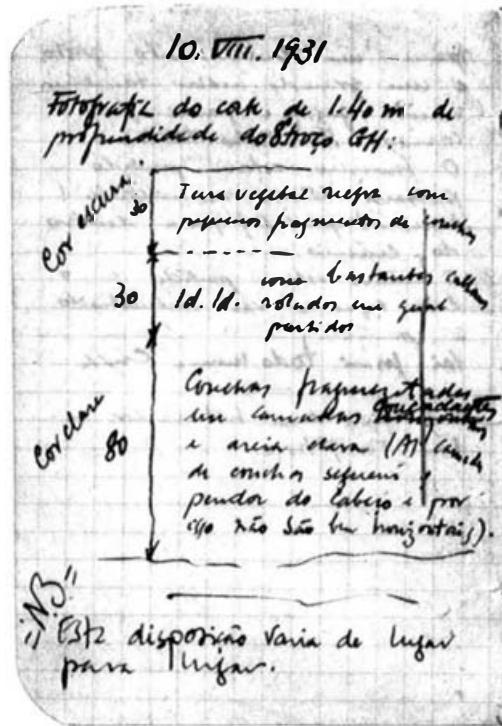 10. VIII. 1931
Fotografia do corte de 1.40 m de
profundidade do troço GH:
Cor escura
30
Terra vegetal negra com
pequenos fragmentos de conchas
30
Id. Id. com bastantes calhaus
rolados em geral
partidos
Cor clare
80
Conchas fragmentadas
em camadas
e areia clara (As camadas
de conchas seguem o
pendor do cabeço e por
isso não são bem horizontais).
"NB"
Esta disposição varia de lugar
para lugar.